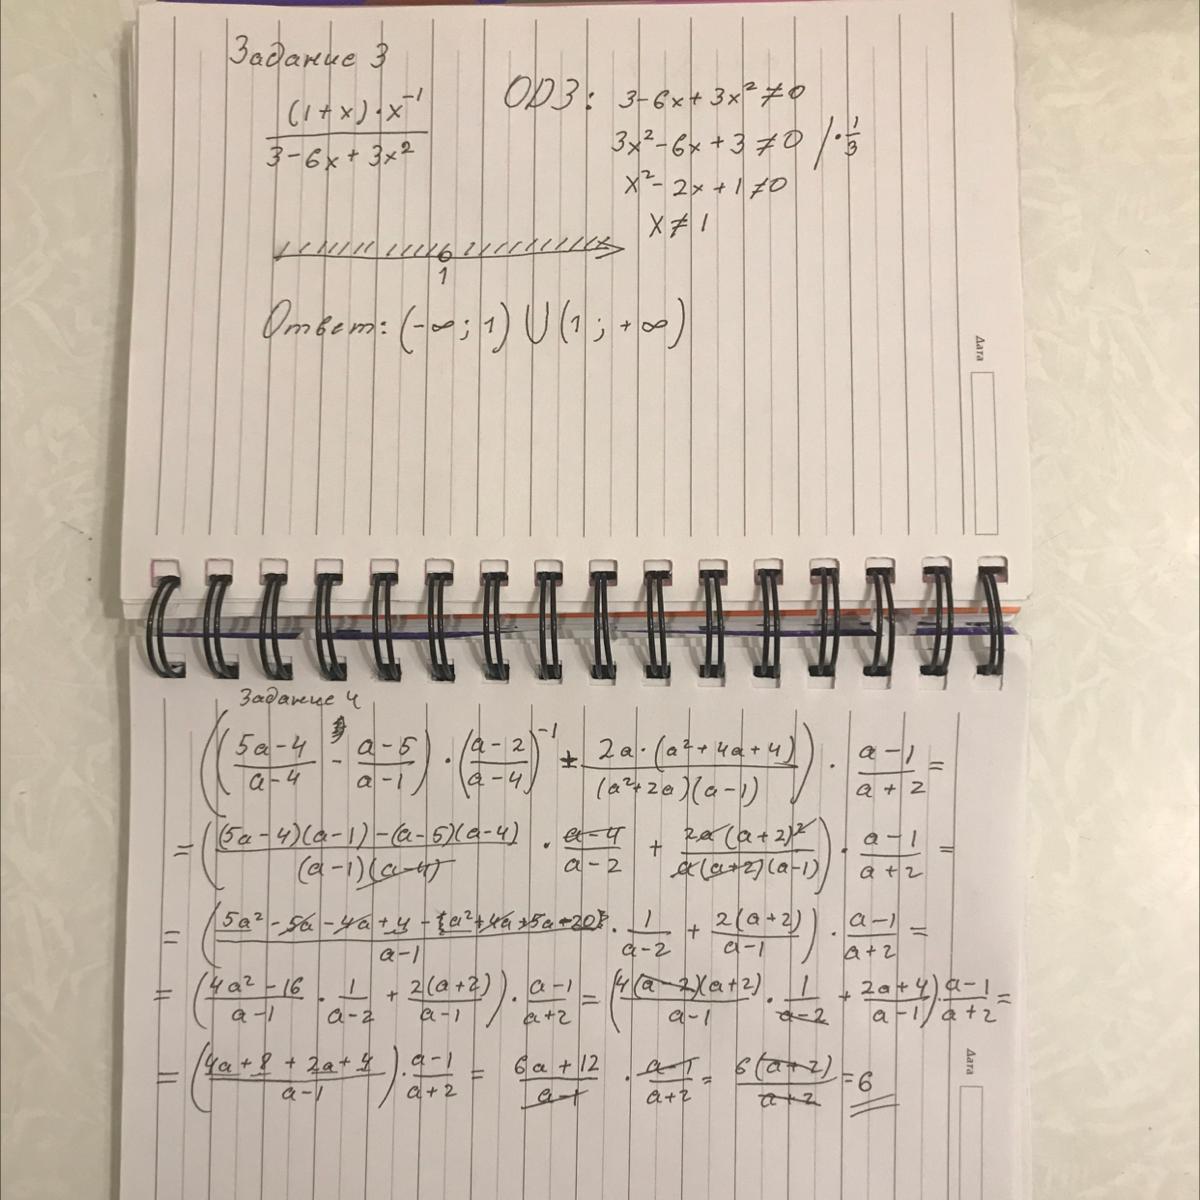 Задание 3
(1+x)·x⁻¹ / 3-6x+3x²
ОДЗ: 3-6x+3x² ≠0
3x²-6x+3≠0 /·1/3
x²-2x+1≠0
x≠1
1
Ответ: (-∞; 1) ∪ (1; +∞)
Дата
Задание 4
((5a-4/a-4 - a-5/a-1) · (a-2/a-4)⁻¹ + 2a·(a²+4a+4)/(a²+2a)(a-1)) · a-1/a+2 =
= ((5a-4)(a-1)-(a-5)(a-4)/(a-1)(a-4) · a-4/a-2 + 2a(a+2)²/a(a+2)(a-1)) · a-1/a+2 =
= (5a²-5a-4a+4-a²+4a+5a-20/a-1 · 1/a-2 + 2(a+2)/a-1) · a-1/a+2 =
= (4a²-16/a-1 · 1/a-2 + 2(a+2)/a-1) · a-1/a+2 = (4(a-2)(a+2)/a-1 · 1/a-2 + 2a+4/a-1) · a-1/a+2 =
= (4a+8+2a+4/a-1) · a-1/a+2 = 6a+12/a-1 · a-1/a+2 = 6(a+2)/a+2 = 6
Дата